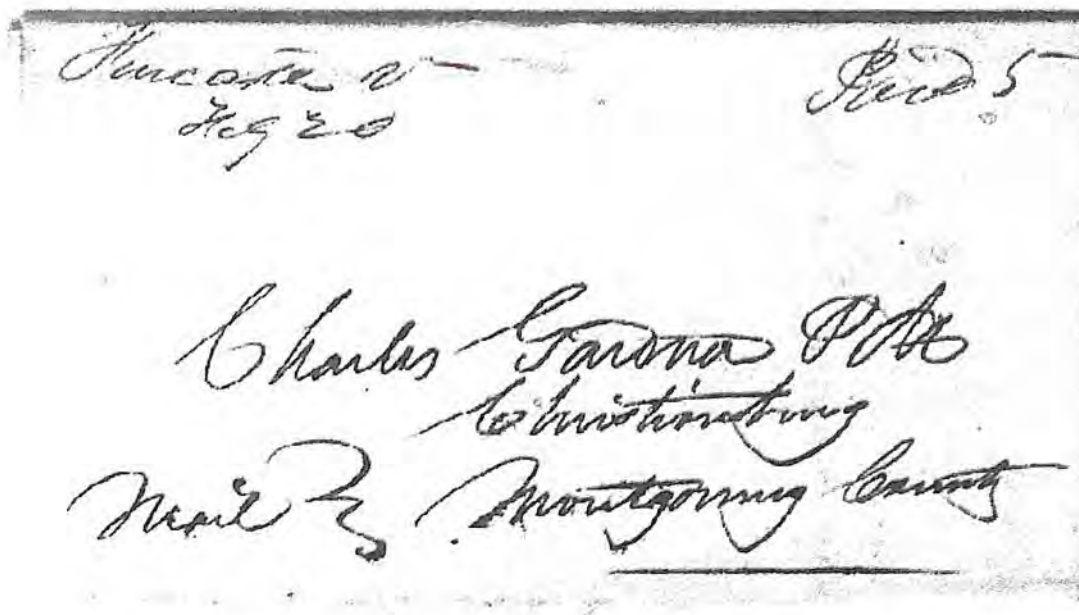 Fincastle Va Paid 5
Feb 20
Charles Gardner PM
Christiansburg
Mail Montgomery County